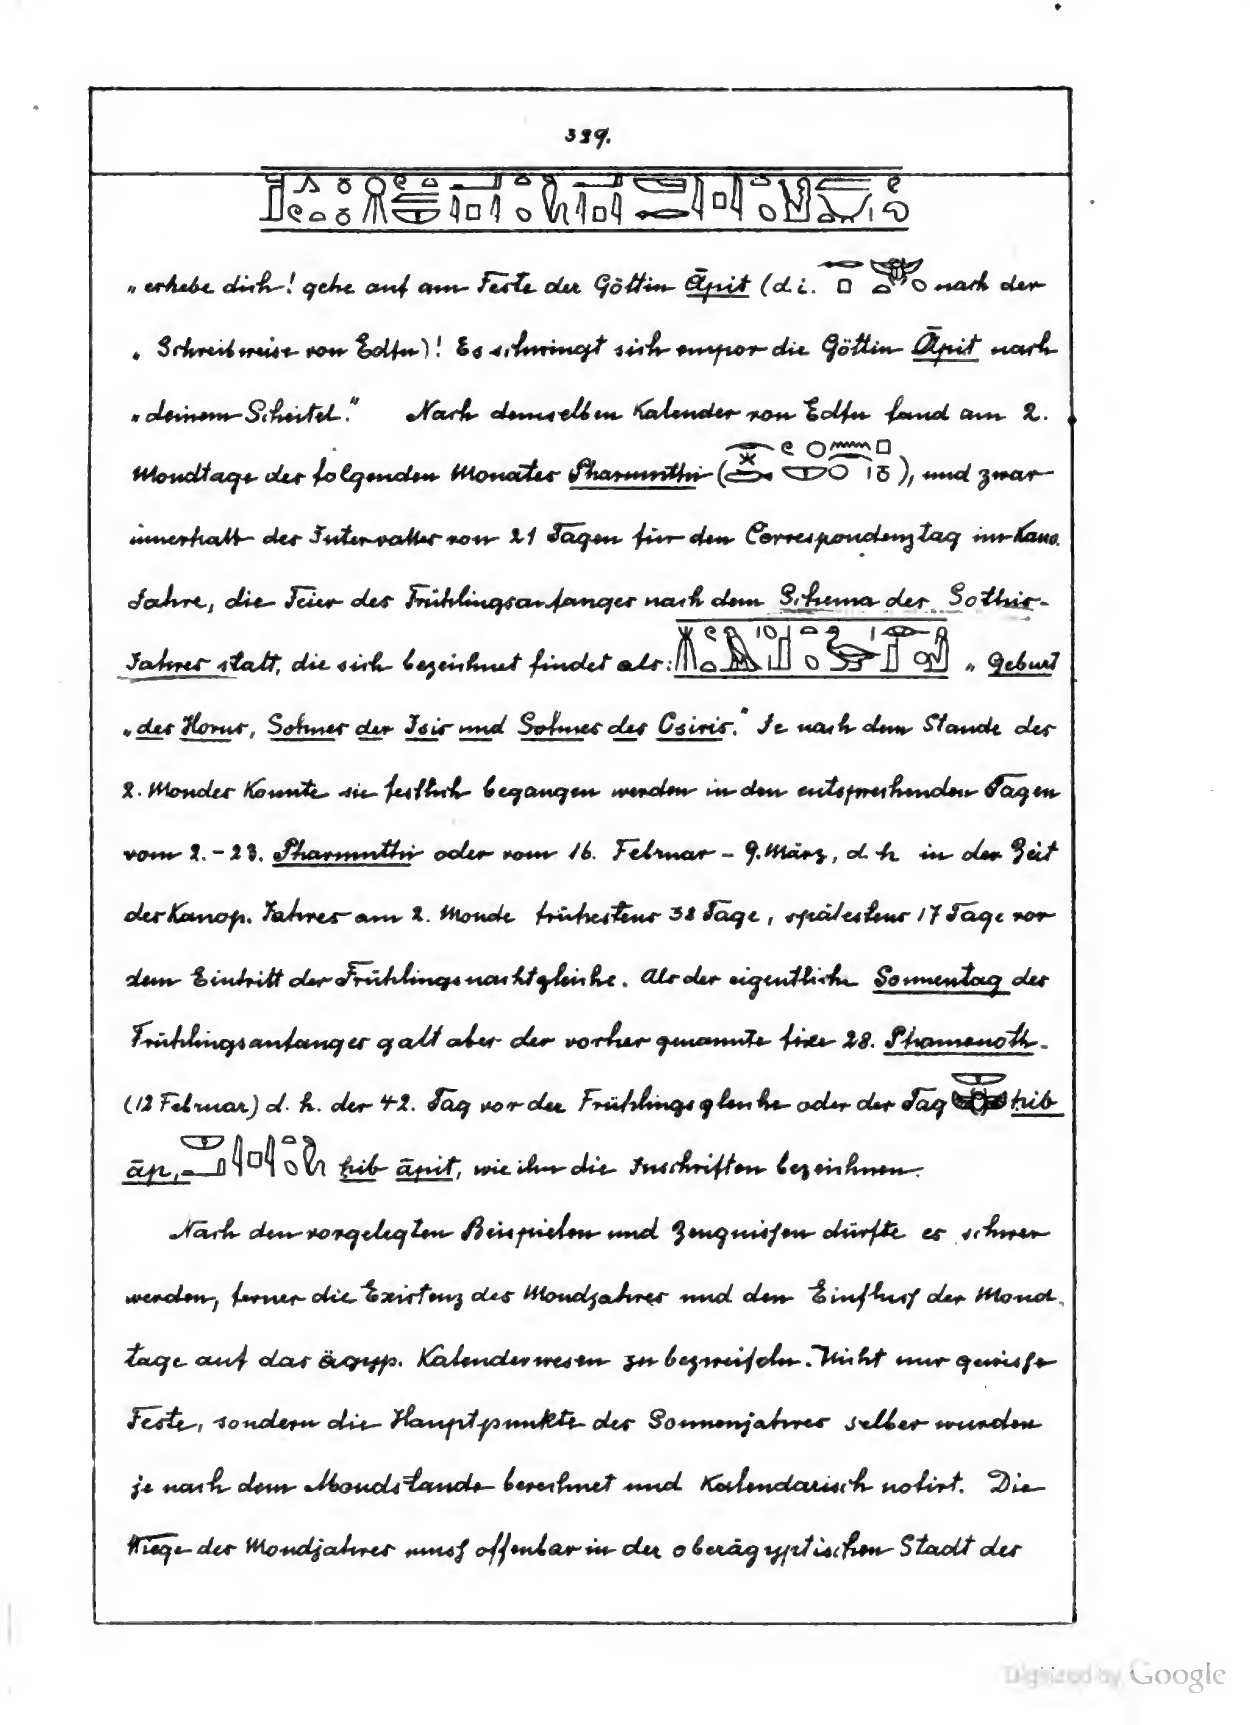 329.
„erhebe dich! gehe auf am Feste der Göttin Āpit (d.i. nach der
„Schreibweise von Edfu)! Es schwingt sich empor die Göttin Āpit nach
„deinem Scheitel." Nach demselben Kalender von Edfu fand am 2.
Mondtage des folgenden Monates Pharmuthi ( ), und zwar
innerhalb des Intervalles von 21 Tagen für den Correspondenztag im Kano.
Jahre, die Feier des Frühlingsanfanges nach dem Schema des Sothis-
Jahres statt, die sich bezeichnet findet als: „Geburt
„des Horus, Sohnes der Isis und Sohnes des Osiris." Je nach dem Stande des
2. Mondes konnte sie festlich begangen werden in den entsprechenden Tagen
vom 2.-23. Pharmuthi oder vom 16. Februar - 9. März, d. h in der Zeit
des Kanop. Jahres am 2. Monde frühestens 38 Tage, spätestens 17 Tage vor
dem Eintritt der Frühlingsnachtgleiche. Als der eigentliche Sonnentag des
Frühlingsanfanges galt aber der vorher genannte fixe 28. Phamenoth
(12 Februar) d. h. der 42. Tag vor der Frühlingsgleiche oder der Tag ḥib
āp, ḥib āpit, wie ihn die Inschriften bezeichnen.
Nach den vorgelegten Beispielen und Zeugnissen dürfte es schwer
werden, ferner die Existenz des Mondjahres und den Einfluss der Mond
tage auf das ägyp. Kalenderwesen zu bezweifeln. Nicht nur gewisse
Feste, sondern die Hauptpunkte des Sonnenjahres selber wurden
je nach dem Mondstande berechnet und kalendarisch notirt. Die
Wiege des Mondjahres muss offenbar in der oberägyptischen Stadt des
Digitized by Google